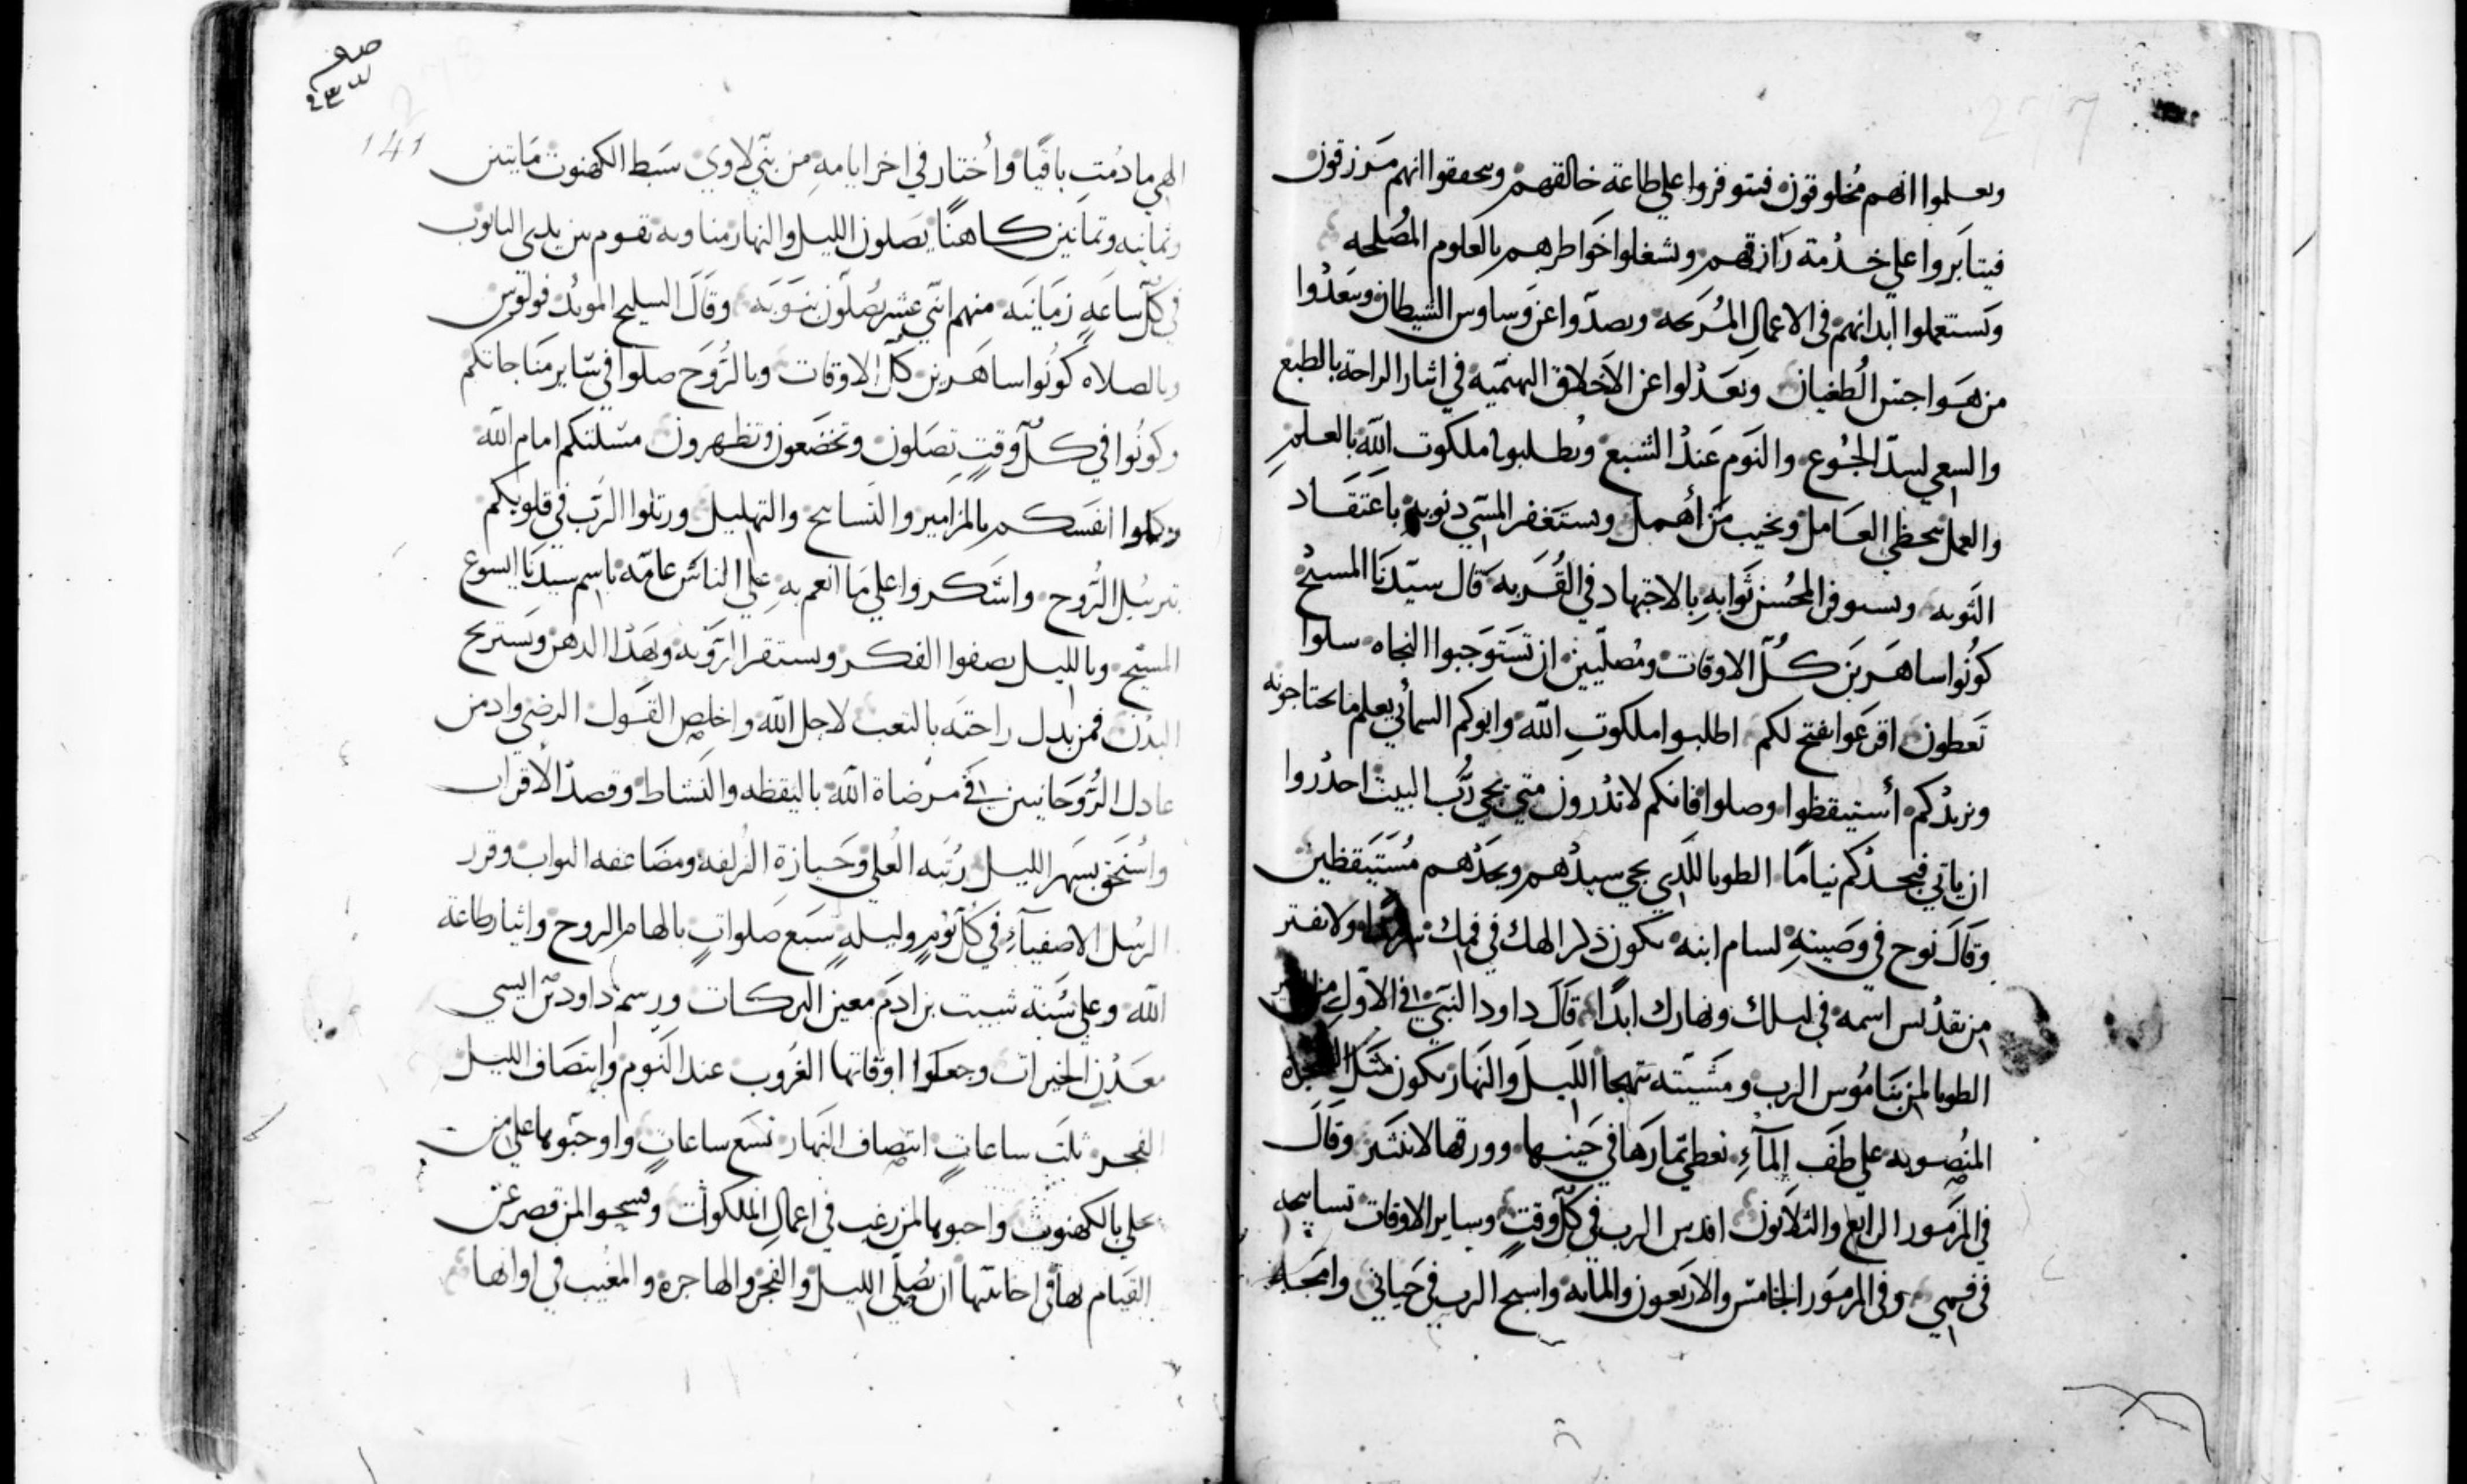 وىعلموا انهم مخلوقون فىتوفروا على طاعة خالقهم وىحققوا انهم مَرزقون
فيتابَروا علي خدْمة رَازقهم وىشغلوا خَواطرهم بالعلوم المُصلحه
وَىستعملوا ابدانهم في الاعمالِ المُرىحه وىصدّوا عن وَساوس الشيطان وىبَعدْوا
من هَواجس الُطغيان وىعَدْلوا عن الاَخلاق البهىميّه في اىثار الراحة بالطبع
والسعي لسِدّ الجُوع والنوَم عَندْ الشبع وىطلبوا ملكوت الله بالعلم
والعمل ىىحظي العَامل وىخيب مَن أهمل وىستغفر المسي دنوبهِ باعتقَاد
التَوبه وىستوفى المُحسن ثَوابهِ بالاجتهاد في القُربه قال سيّدنَا المسيح
كونُوا ساهَرين كُلّ الاوقات ومُصلّيين ان تَستَوجبوا النجاه سلوا
تَعطون اقرعَوا ىفتح لكم اطلبوا ملكوتِ الله وابوكم السمائي يعلم ما تحتاجونه
وىزيدْكم أستيقظوا وصلوا فانكم لا تدْرون متي ىجي رُب البيت احدْروا
ان ياتي فيجدْكم نيامًا الطوبا للدي ىجي سيدْهم وىجَدْهم مُستَيَقظين
وقَالَ نوح في وصَيتهِ لسام ابنه ىكون ذكر الهك في فمك ولا تفتر
من تقدْىس اسمه في ليلك ونهارك ابدًا قَالَ داود النبَي في الاَول من
الطوبا لمن بنَامُوس الرب ومَشيّته ىتهجا اللَيلَ والنَهار ىكون مَثل الشجرة
المنُصوبه علي طَف المآءِ تعطي ثمارَها في حَينها وورقها لا ىنتثر وقَالَ
في المزَمور الرابع والثلاثون اقدس الرب في كُلّ وقتٍ وساير الاوقات تسابيحه
في فمي وفي المزمَور الخامس والاربَعون والمايه واسبح الرب في حَياتي وامَجد
الهي مادُمت باقيًا وأختار في اخر ايامهِ من بنَي لاوي سَبط الكهنوت مَايتين
وثمانيه وثمانين كاهنًا يصَلون الليل والنهار مناوبه تقوم بين يدي التابوت
في كُلّ ساعَه زمَانيَه منهم اثني عشر يُصَلّون بنَوبَه وقَالَ السليح المويدْ فولوس
وبالصلاه كُونُوا ساهَرين كلّ الاوقات وبالرُوَح صلوا في سَاير منَاجاتكم
وكونُوا في كُلّ وقتٍ تصَلون وتخضَعون وتظهرون مسَلتكم امام الله
وكملوا انفَسكم بالمزَامير والتَسابيح والتهليل ورتلوا الرَب في قلوبكم
بترتيل الرُوح واشكروا علي مَا انعم بهِ علي الناسَ عامّه باسم سيدنَا ايسوع
المسَيح وبالليل ىصفوا الفكر وىستقر الروَيَه وىهَدْا الدهن وىَستريح
البدْن فمن بدل راحتَه بالتعب لاجل الله واخلص القَول الرضي وادمن
عادل الرُوحَانيين في مَرضاة الله باليقظه والنَشاط وقصدْ الاقران
واستحَق بسَهر الليل رُتبَه العُلي وحَيازة الزُلفه ومضَاعفه الثواب وقرر
الرسُل الاصفيآءِ في كُلّ يَومٍ وليلهٍ سَبع صَلواتٍ بالهام الروح واىثار طاعة
الله وعلي سُنَة شيىت بن ادمَ معين البركات ورسم داود بن ايسي
معَدْن الخيرات وجعَلوا اوقاتها الغرُوب عند النَوم وانتصَاف الليل
الفجر ثلثَ ساعاتٍ انتصاف النهَار تسَع ساعاتٍ واوجبَوها علي من
تحلي بالكهنوتُ واحبوها لمن رغب في اعمالِ الملكوات وفسحوا لمن قصر عن
القيَام بها في احايىنها ان يُصلّي الليل والفجر والهاجره والمغيب في اوانها
141